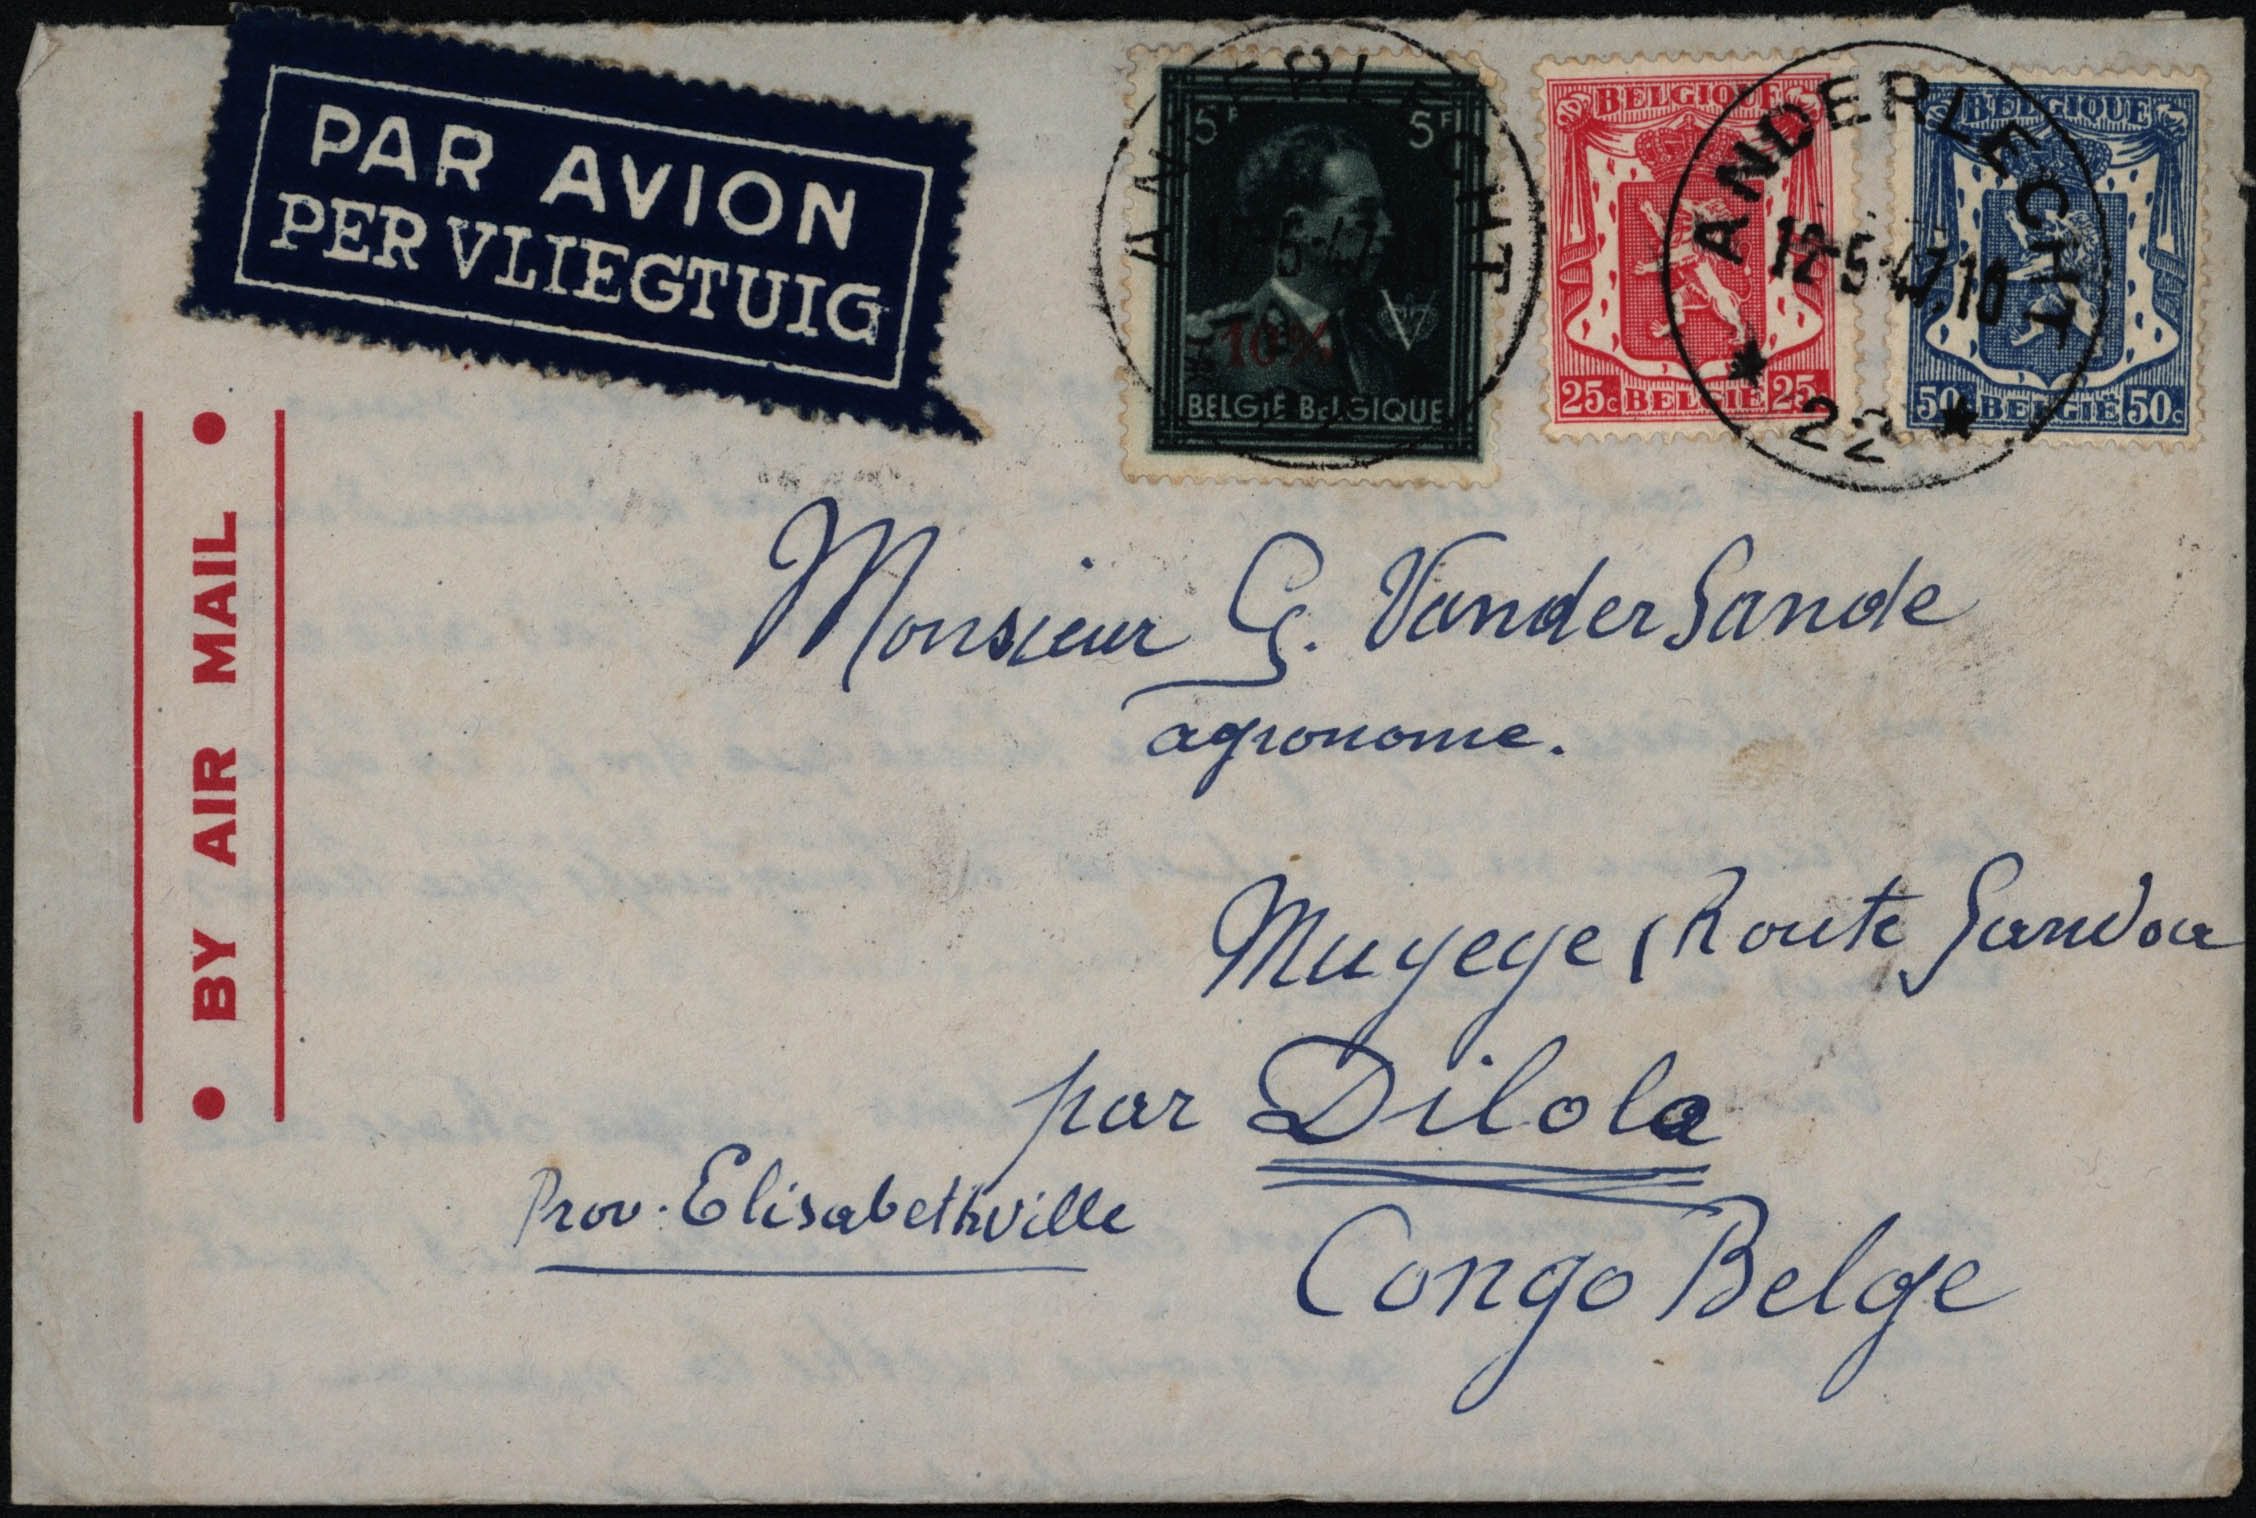 PAR AVION
PER VLIEGTUIG
BY AIR MAIL
ANDERLECHT
5F 5F
-5-47
10%
V
BELGIË BELGIQUE
BELGIQUE
25c BELGIË 25c
ANDERLECHT
12-5-47.10
22
BELGIQUE
50c BELGIË 50c
Monsieur G. VanderSande
agronome.
Muyeye (Route Sandoa
par Dilolo
Prov. Elisabethville
Congo Belge